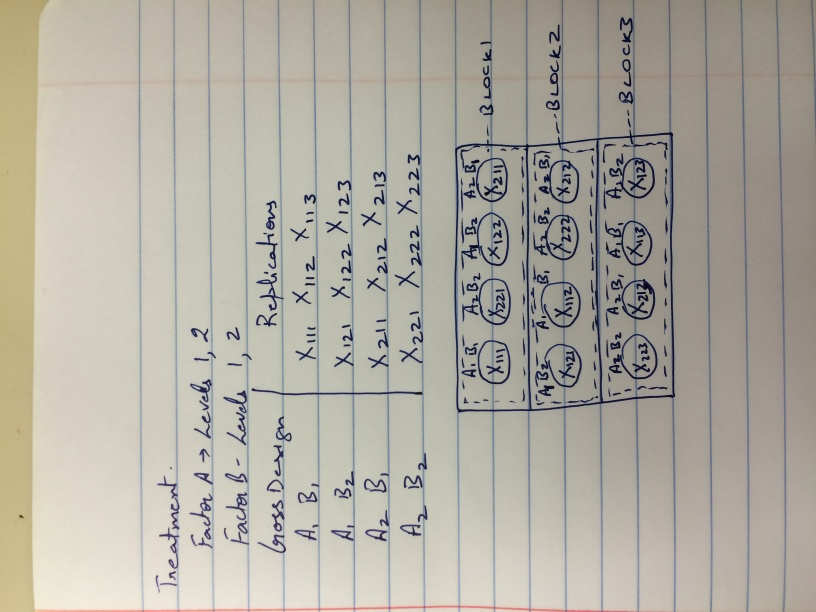 Treatment.
Factor A → Levels 1, 2
Factor B - Levels 1, 2
Cross Design Replications
A1 B1 X111 X112 X113
A1 B2 X121 X122 X123
A2 B1 X211 X212 X213
A2 B2 X221 X222 X223
A1 B1 A2 B2 A1 B2 A2 B1
X111 X221 X122 X211 --- BLOCK1
A1 B2 A1 B1 A2 B2 A2 B1
X121 X112 X222 X212 --- BLOCK2
A2 B2 A2 B1 A1 B1 A1 B2
X223 X212 X113 X123 --- BLOCK3